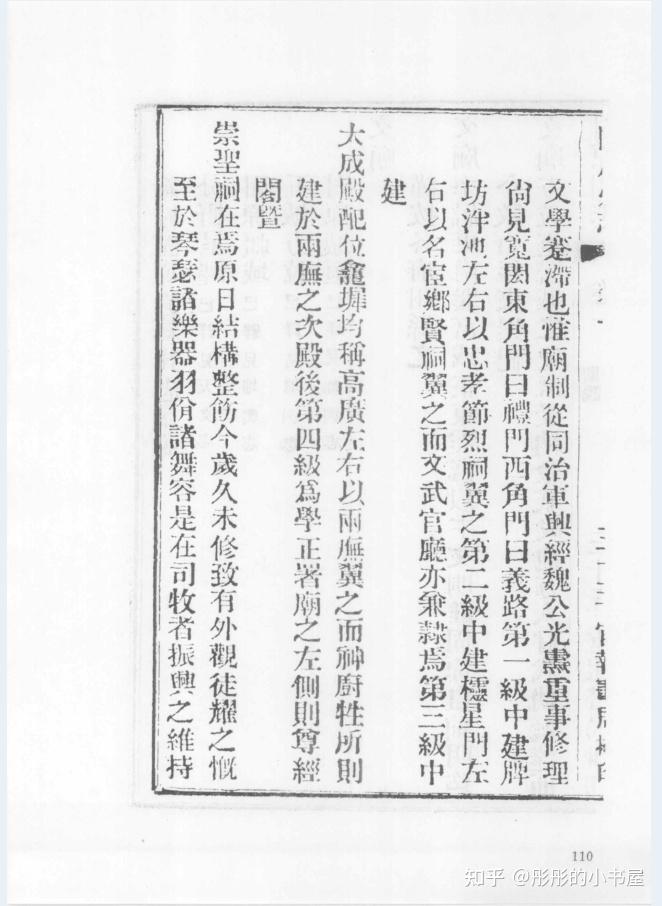 文學蹇滯也惟廟制從同治軍興經魏公光燾重事修理
尙見寬閎東角門曰禮門西角門曰義路第一級中建牌
坊泮池左右以忠孝節烈祠翼之第二級中建欞星門左
右以名宦鄉賢祠翼之而文武官廳亦兼隸焉第三級中
建
大成殿配位龕墀均稱高廣左右以兩廡翼之而神廚牲所則
建於兩廡之次殿後第四級爲學正署廟之左側則尊經
閣暨
崇聖祠在焉原日結構整飭今歲久未修致有外觀徒耀之慨
至於琴瑟諸樂器羽佾諸舞容是在司牧者振興之維持
110
知乎 @彤彤的小书屋